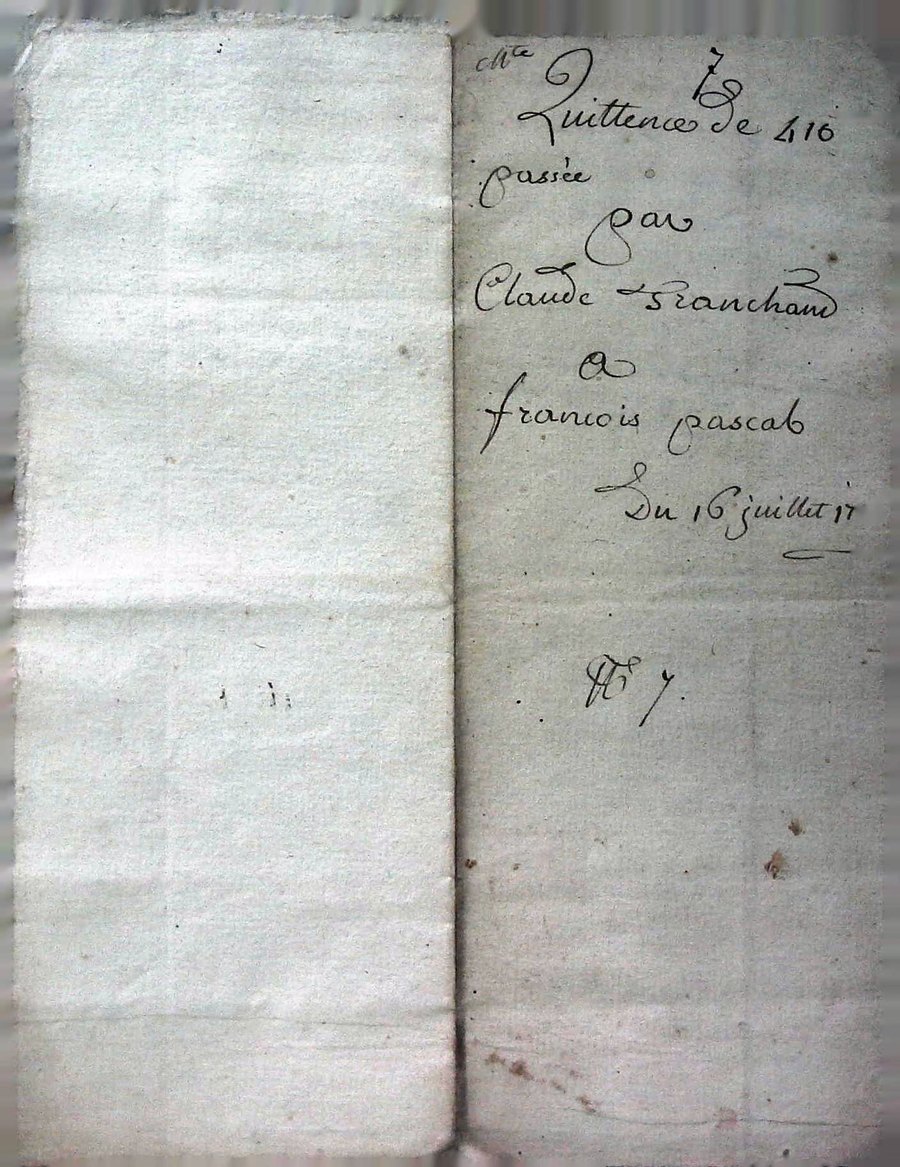 7
Quittence de 416
passée
par
Claude Franchand
a
francois pascal
Du 16 juillet 17
N 7.